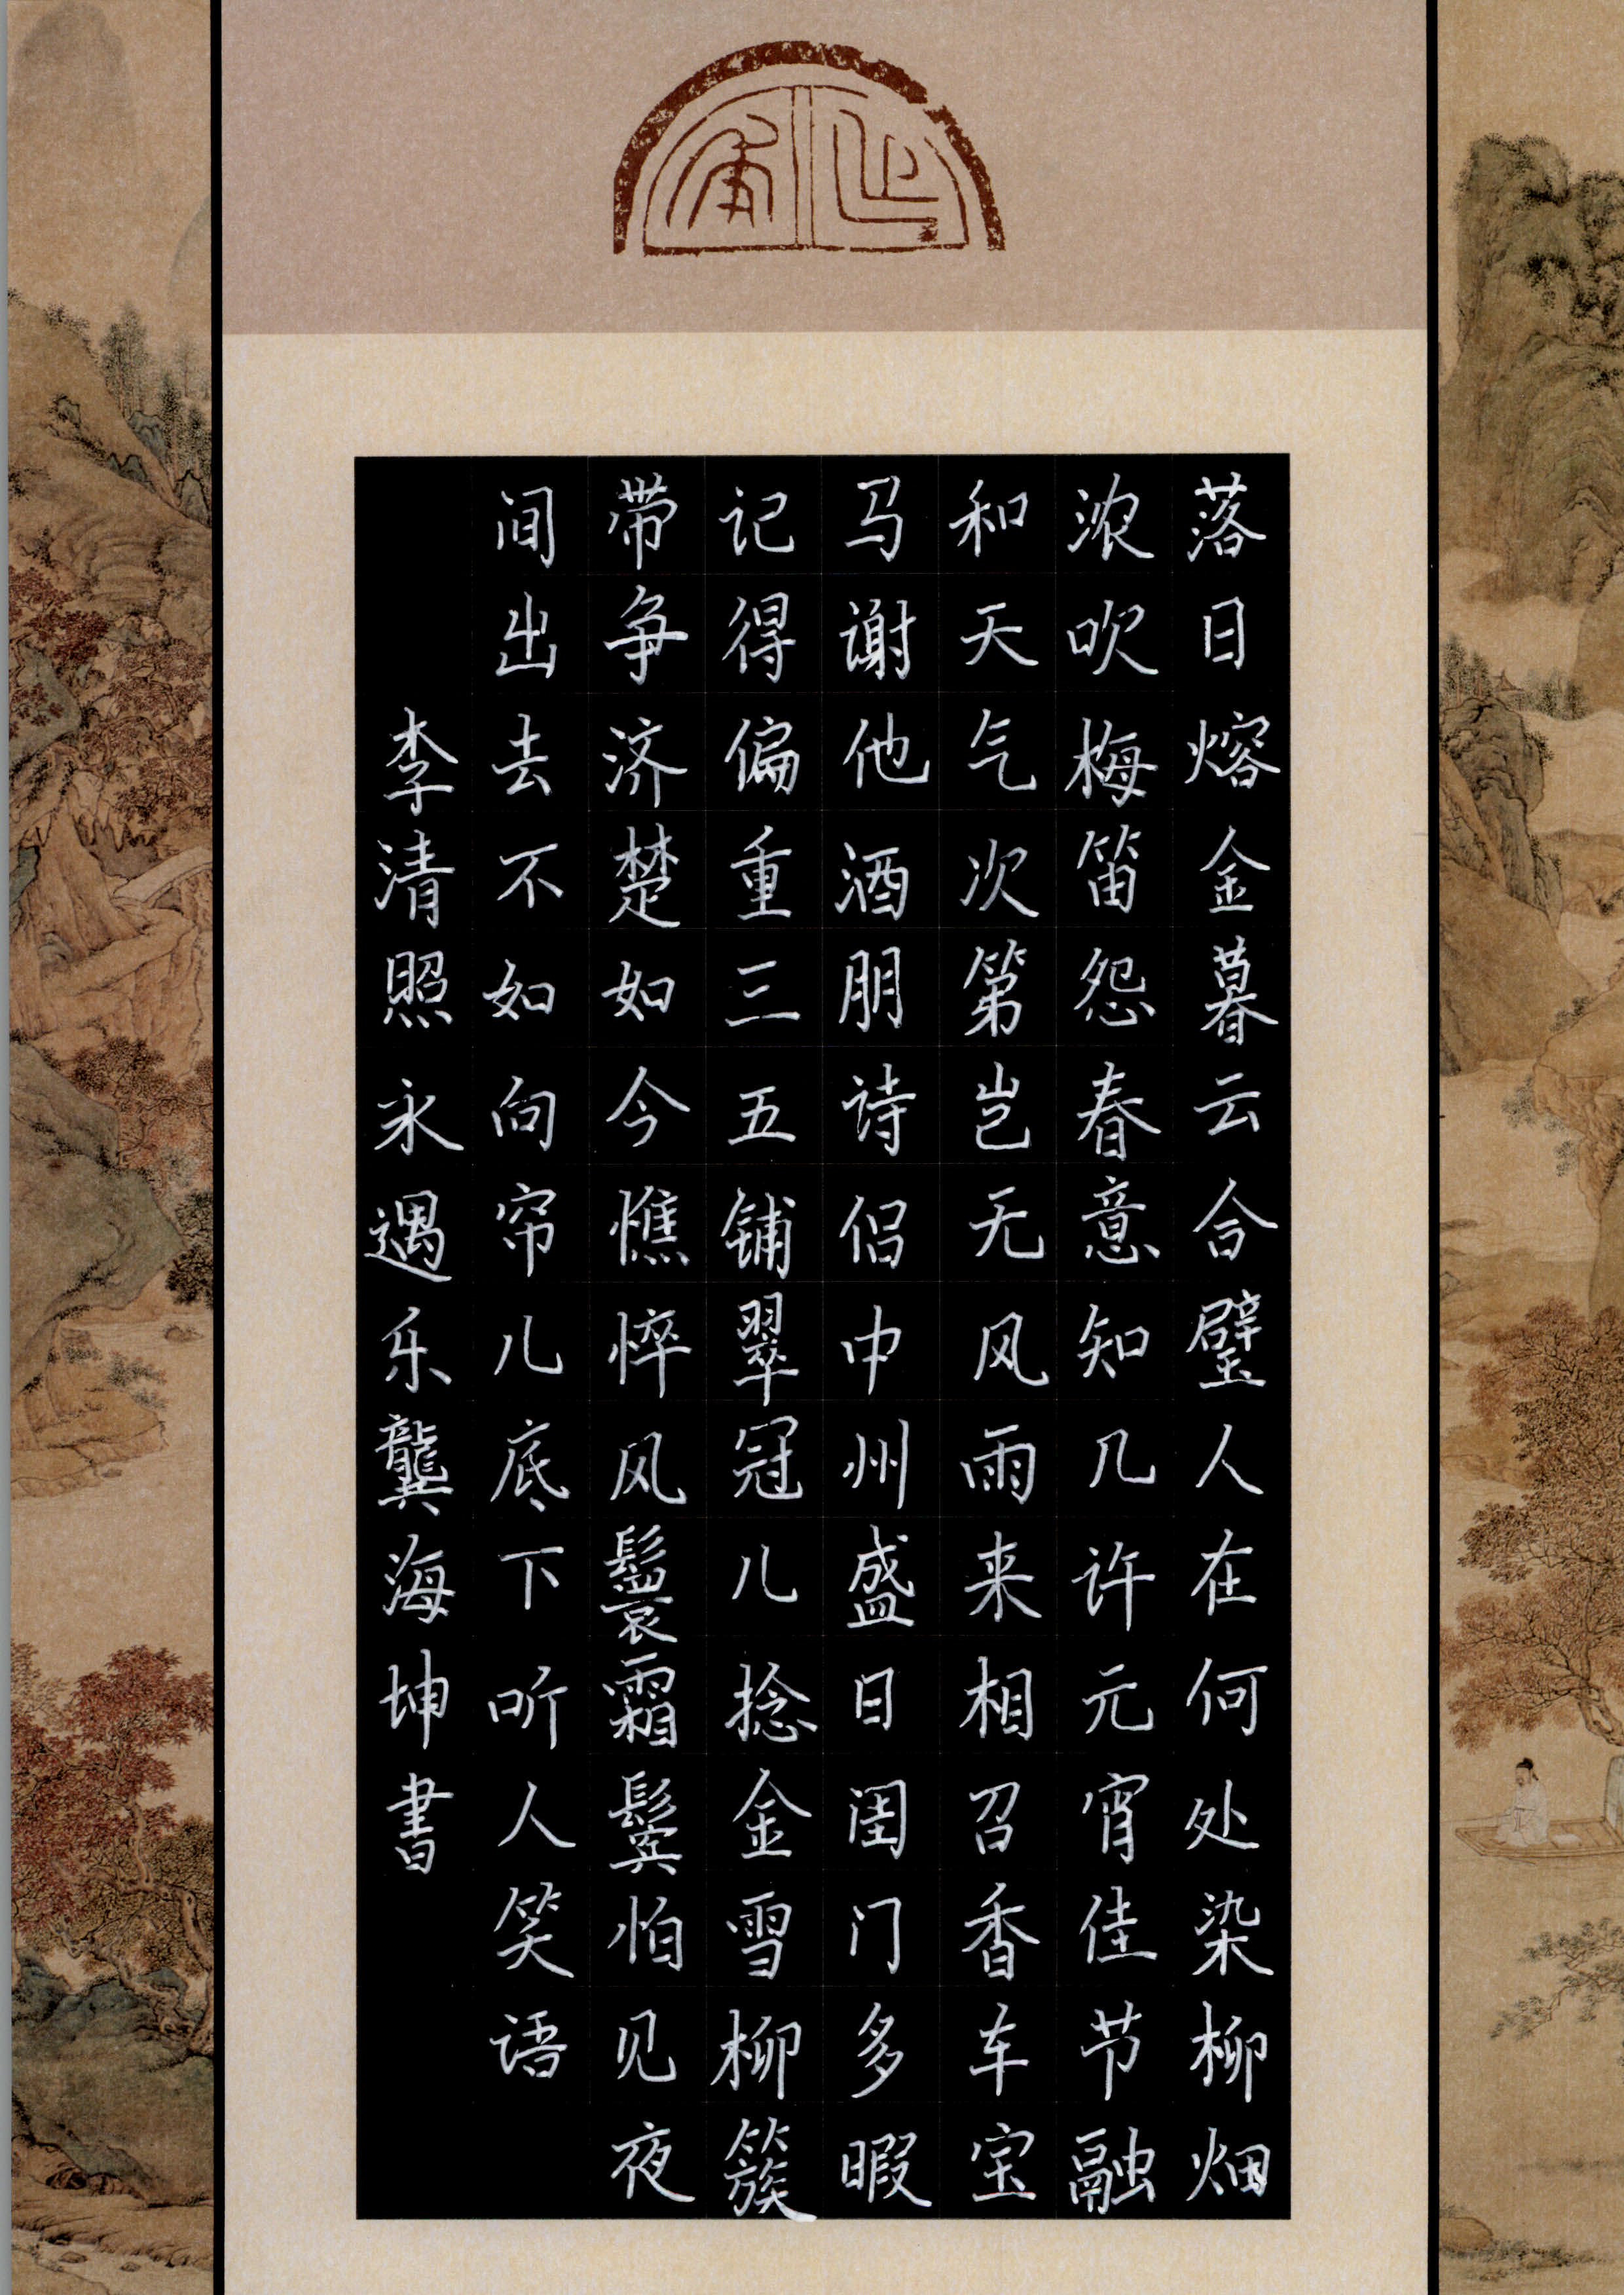 落日熔金暮云合璧人在何处染柳烟
浓吹梅笛怨春意知几许元宵佳节融
和天气次第岂无风雨来相召香车宝
马谢他酒朋诗侣中州盛日闺门多暇
记得偏重三五铺翠冠儿捻金雪柳簇
带争济楚如今憔悴风鬟霜鬓怕见夜
间出去不如向帘儿底下听人笑语
李清照永遇乐龔海坤書